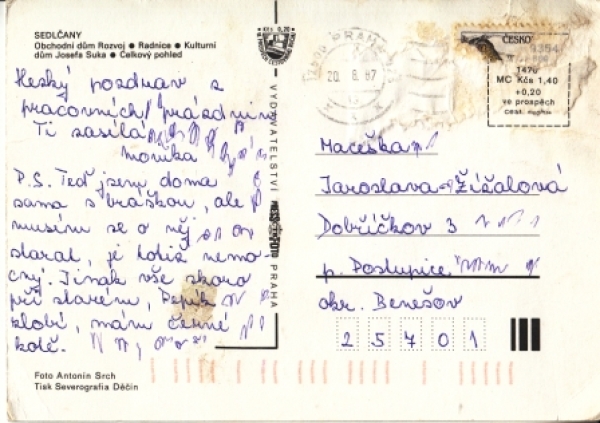 SEDLČANY
Obchodní dům Rozvoj ● Radnice ● Kulturní
dům Josefa Suka ● Celkový pohled
Hezký pozdrav z
pracovních prázdnin
Ti zasílá
Monika
P.S. Teď jsem doma
sama s bráškou, ale
musím se o něj
starat, je totiž nemo-
cný. Jinak vše skoro
při starém, Pepík
zlobí, mám černé
kolo.
Foto Antonín Srch
Tisk Severografia Děčín
VYDAVATELSTVÍ
PRAHA
PRAHA
20. 8. 87
ČESKO
1470
MC Kčs 1,40
+0,20
ve prospěch
Maceška
Jaroslava Žížalová
Dobříčkov 3
p. Postupice
okr. Benešov
25701